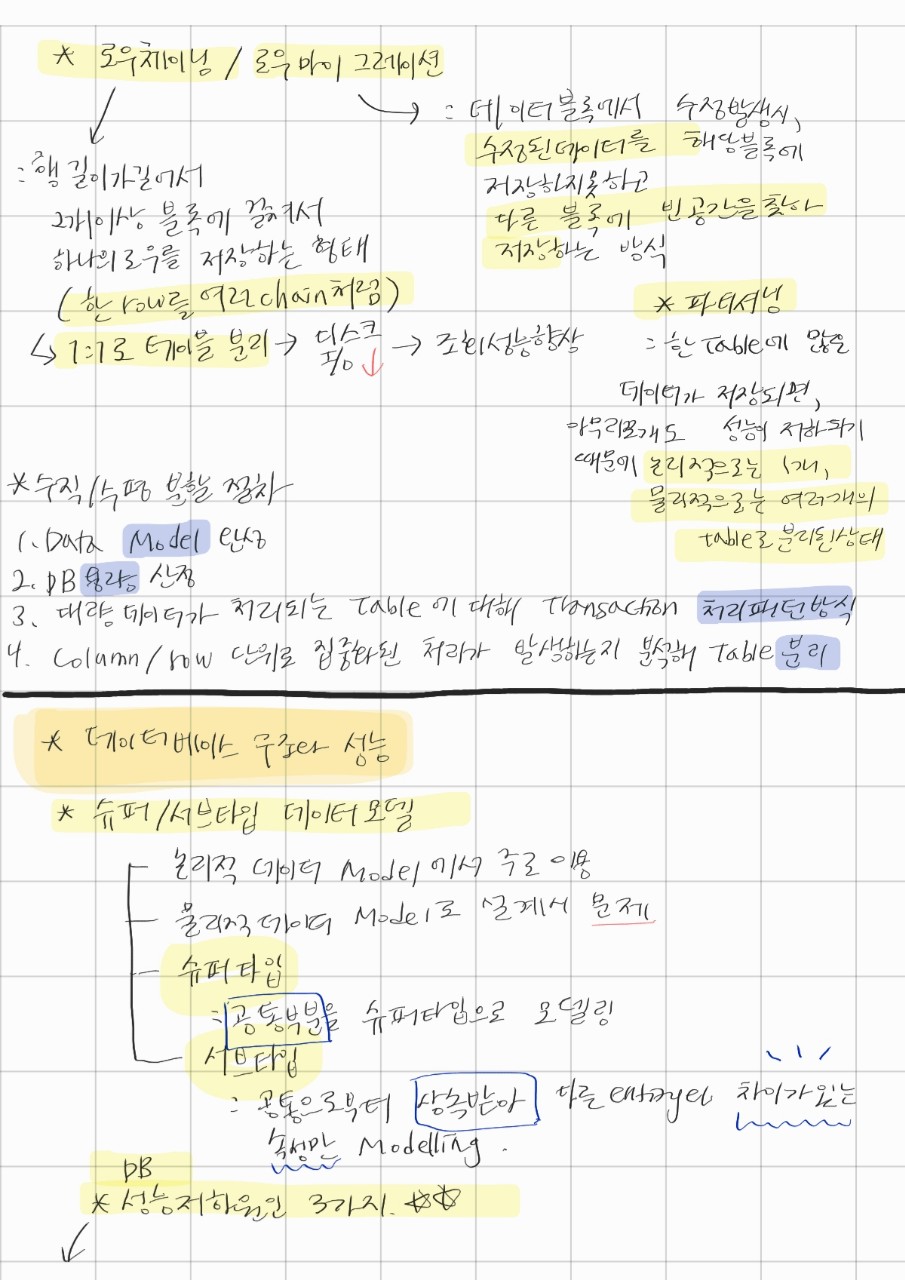 * 로우체이닝 / 로우마이그레이션
: 행 길이가 길어서
2개이상 블록에 걸쳐서
하나의 로우를 저장하는 형태
(한 row를 여러 chain처럼)
↳ 1:1로 테이블 분리 → 디스크 I/O ↓ → 조회성능향상
: 데이터블록에서 수정발생시,
수정된데이터를 해당블록에
저장하지못하고
다른 블록에 빈공간을찾아
저장하는 방식
* 파티셔닝
: 한 Table에 많은
데이터가 저장되면,
아무리쪼개도 성능이 저하되기
때문에 논리적으로는 1개,
물리적으로는 여러개의
table로 분리된상태
* 수직/수평 분할 절차
1. Data Model 완성
2. DB 용량 산정
3. 대량데이터가 처리되는 Table에 대해 Transaction 처리패턴방식
4. Column/row 단위로 집중화된 처리가 발생하는지 분석해 Table 분리
* 데이터베이스 구조와 성능
* 슈퍼/서브타입 데이터모델
논리적 데이터 Model에서 주로 이용
물리적데이터 Model로 설계시 문제
슈퍼타입
: 공통부분을 슈퍼타입으로 모델링
서브타입
: 공통으로부터 상속받아 다른 entity와 차이가 있는
속성만 Modelling.
DB
* 성능저하원인 3가지. ☆☆